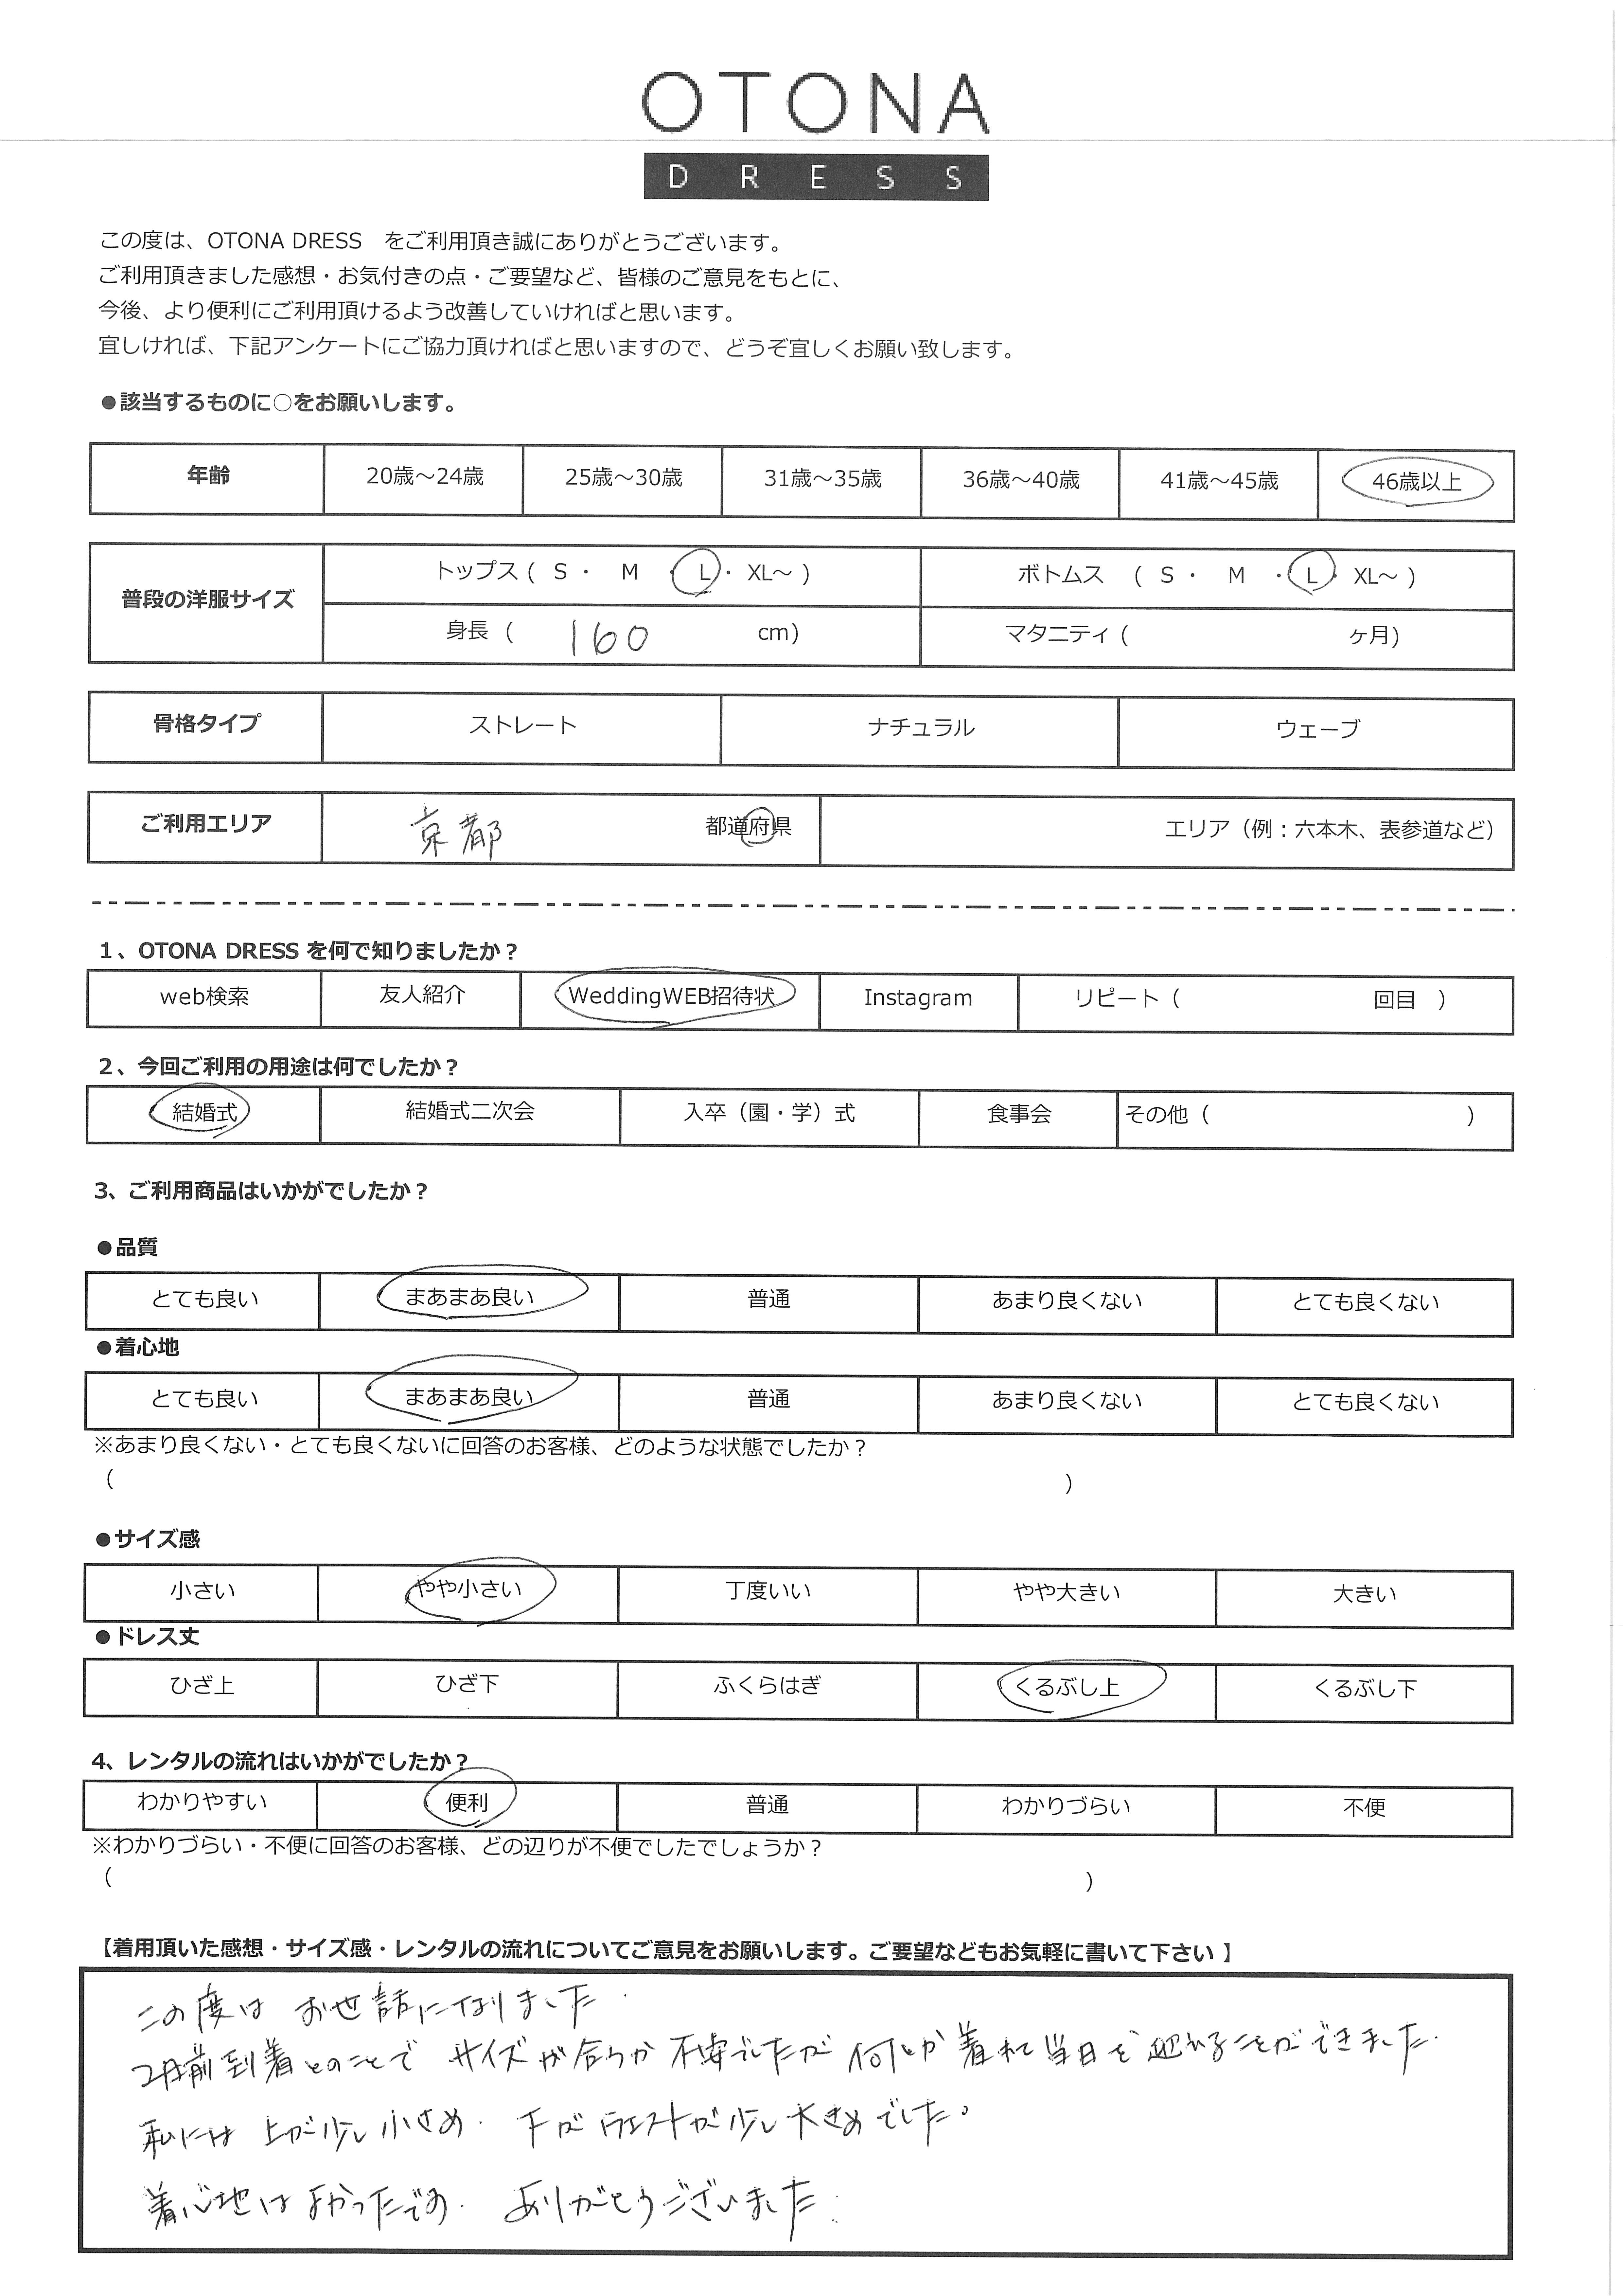 OTONA
DRESS
この度は、OTONA DRESS　をご利用頂き誠にありがとうございます。
ご利用頂きました感想・お気付きの点・ご要望など、皆様のご意見をもとに、
今後、より便利にご利用頂けるよう改善していければと思います。
宜しければ、下記アンケートにご協力頂ければと思いますので、どうぞ宜しくお願い致します。
●該当するものに○をお願いします。
年齢 20歳～24歳 25歳～30歳 31歳～35歳 36歳～40歳 41歳～45歳 46歳以上
普段の洋服サイズ トップス ( S ・ M ・ L ・ XL～ ) ボトムス ( S ・ M ・ L ・ XL～ )
身長 ( 160 cm) マタニティ ( ヶ月)
骨格タイプ ストレート ナチュラル ウェーブ
ご利用エリア 京都 都道府県 エリア（例：六本木、表参道など）
1、OTONA DRESS を何で知りましたか？
web検索 友人紹介 WeddingWEB招待状 Instagram リピート（ 回目 ）
2、今回ご利用の用途は何でしたか？
結婚式 結婚式二次会 入卒（園・学）式 食事会 その他（ ）
3、ご利用商品はいかがでしたか？
●品質
とても良い まあまあ良い 普通 あまり良くない とても良くない
●着心地
とても良い まあまあ良い 普通 あまり良くない とても良くない
※あまり良くない・とても良くないに回答のお客様、どのような状態でしたか？
（ ）
●サイズ感
小さい やや小さい 丁度いい やや大きい 大きい
●ドレス丈
ひざ上 ひざ下 ふくらはぎ くるぶし上 くるぶし下
4、レンタルの流れはいかがでしたか？
わかりやすい 便利 普通 わかりづらい 不便
※わかりづらい・不便に回答のお客様、どの辺りが不便でしたでしょうか？
（ ）
【着用頂いた感想・サイズ感・レンタルの流れについてご意見をお願いします。ご要望などもお気軽に書いて下さい 】
この度は お世話になりました.
2日前到着とのことで サイズが合うか 不安でしたが 何とか着れて当日を迎れることができました.
私には 上が少し小さめ. 下がウエストが少し大きめでした。
着心地はよかったです. ありがとうございました.